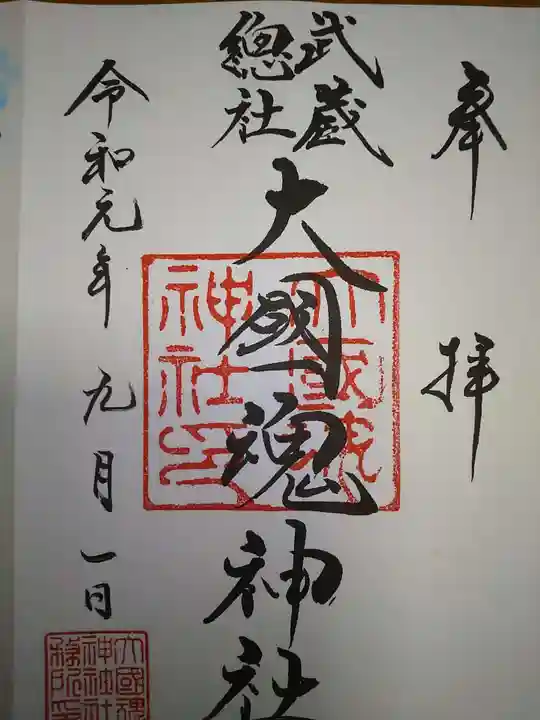 奉拝
武蔵
總社
大國魂神社
大國魂
神社印
令和元年九月一日
大國魂
神社